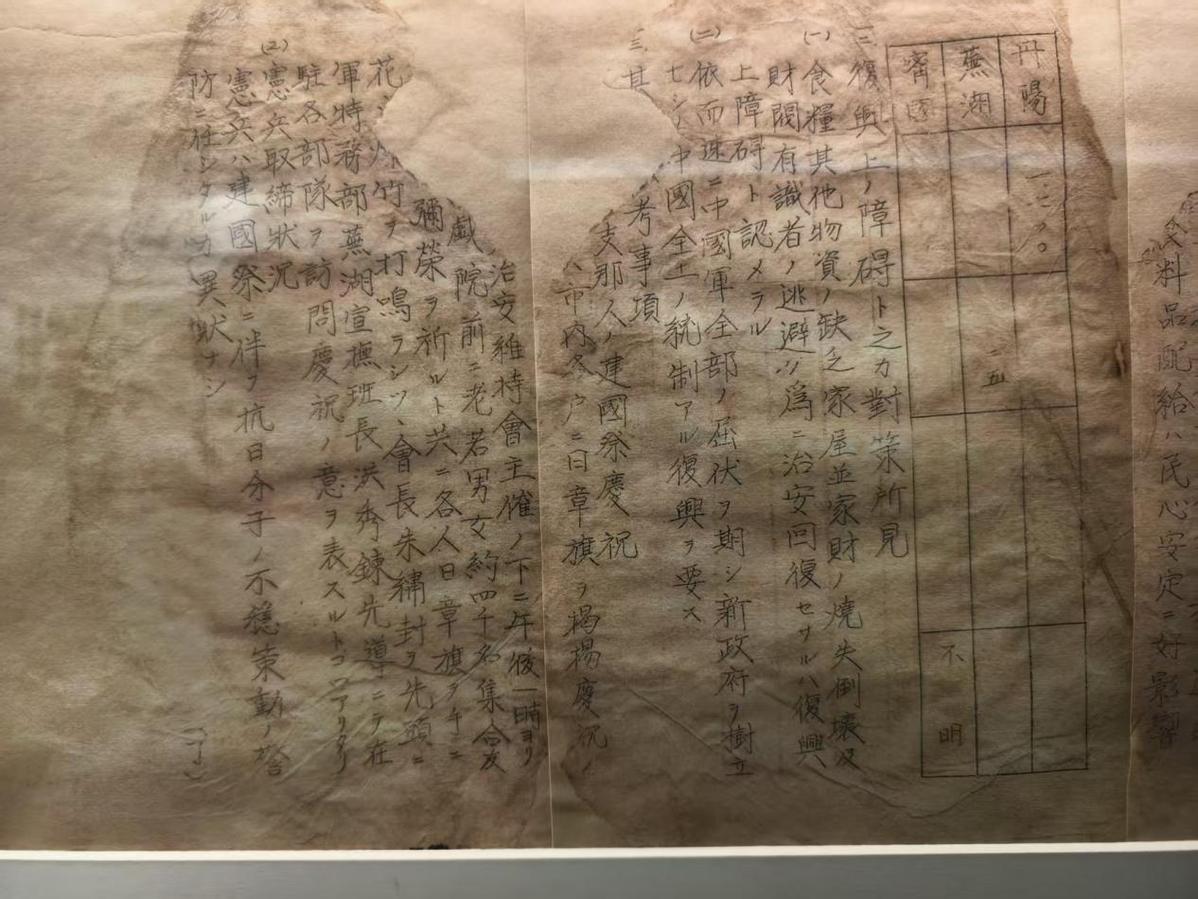 食料品配給ハ民心安定ニ好影響
丹陽
一二〇〇
蕪湖
二五
不明
甯國
二、復興上ノ障碍ト之カ對策所見
(一)食糧其他物資ノ缺乏家屋並家財ノ燒失倒壞及
財閥有識者ノ逃避ノ爲ニ治安回復セサルハ復興
上障碍ト認メラル
(二)依而速ニ中國軍全部ノ屈伏ヲ期シ新政府ヲ樹立
セシメ中國全土ノ統制アル復興ヲ要ス
三、其 考事項
支那人ノ建國祭慶祝
市内各戸ニ日章旗ヲ揭揚慶祝ノ
治安維持會主催ノ下ニ午後一時ヨリ
戲院前ニ老若男女約四千名集合皇
彌榮ヲ祈ルト共ニ各人日章旗ヲ手ニ
花 爆竹ヲ打鳴ラシツヽ會長朱繡封ヲ先頭ニ
軍特務部蕪湖宣撫班長洪秀鍊先導ニテ在
駐各部隊ヲ訪問慶祝ノ意ヲ表スルトコロアリタリ
(2)憲兵取締狀況
憲兵ハ建國祭ニ伴フ抗日分子ノ不穩策動ノ警
防ニ任シタルカ異狀ナシ
(了)